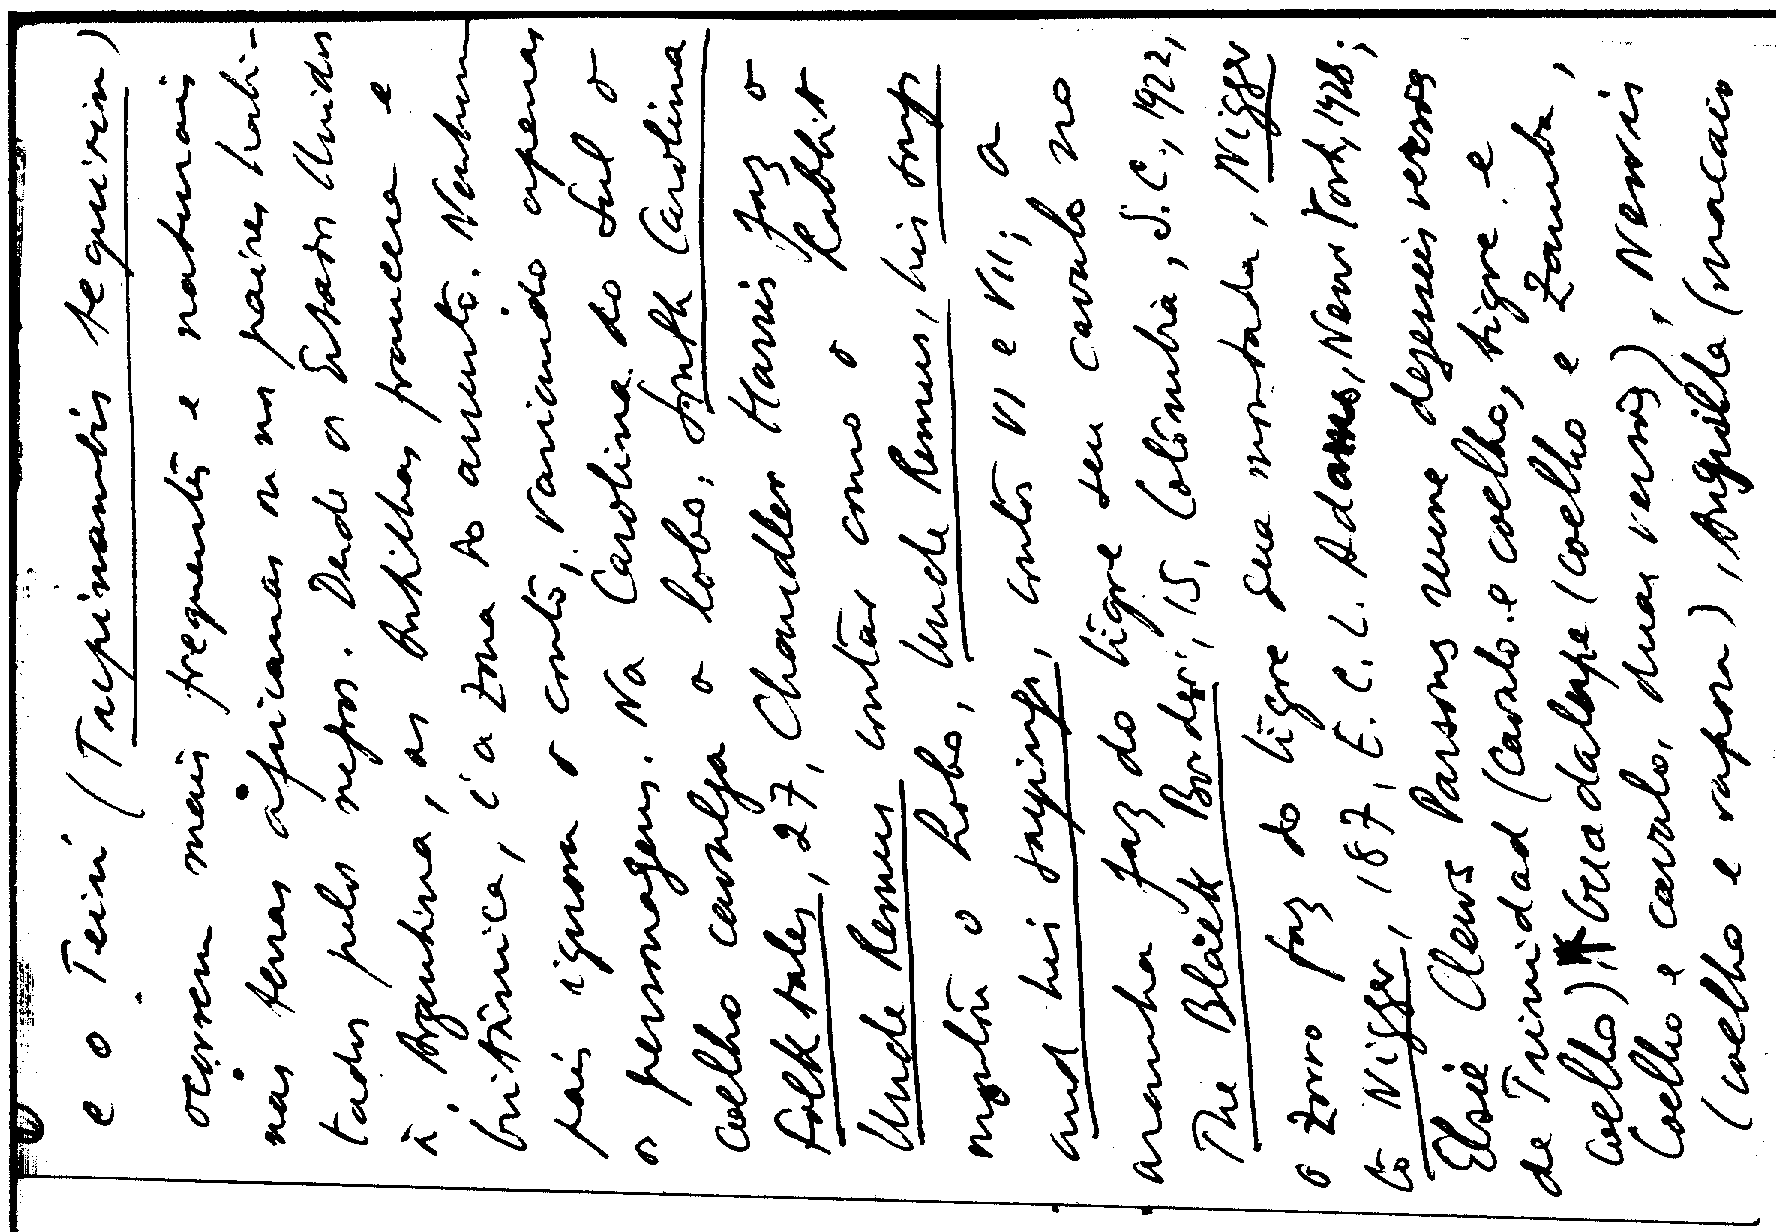 e o Teiú (Tupinambis tequixin)
ocorrem mais frequentes e naturais
nas terras africanas ou nos paises habi-
tados pelos negros. Desde os Estados Unidos
à Argentina, as Antilhas francesa e
britânica, é a zona do assunto. Nenhum
pais ignora o conto, variando apenas
os personagens. Na Carolina do Sul o
coelho cavalga o lobo, South Carolina
Folk tales, 27, Chandler Harris faz o
Uncle Remus contar como o Rabbit
montou o Lobo, Uncle Remus, his songs
and his sayings, contos VI e VII; a
aranha faz do tigre seu cavalo no
The Black Border, 15, Colômbia, S.C., 1922,
o zorro faz do tigre sua montada, Nigger
to Nigger, 187, E. C. L. Adams, New York, 1928;
Elsie Clews Parsons reune desesseis versões
de Trinidad (cavalo e coelho, tigre e
coelho), Guadalupe (coelho e Zamba,
Coelho e cavalo, duas versões), Nevis
(coelho e raposa), Anguilla (macaco